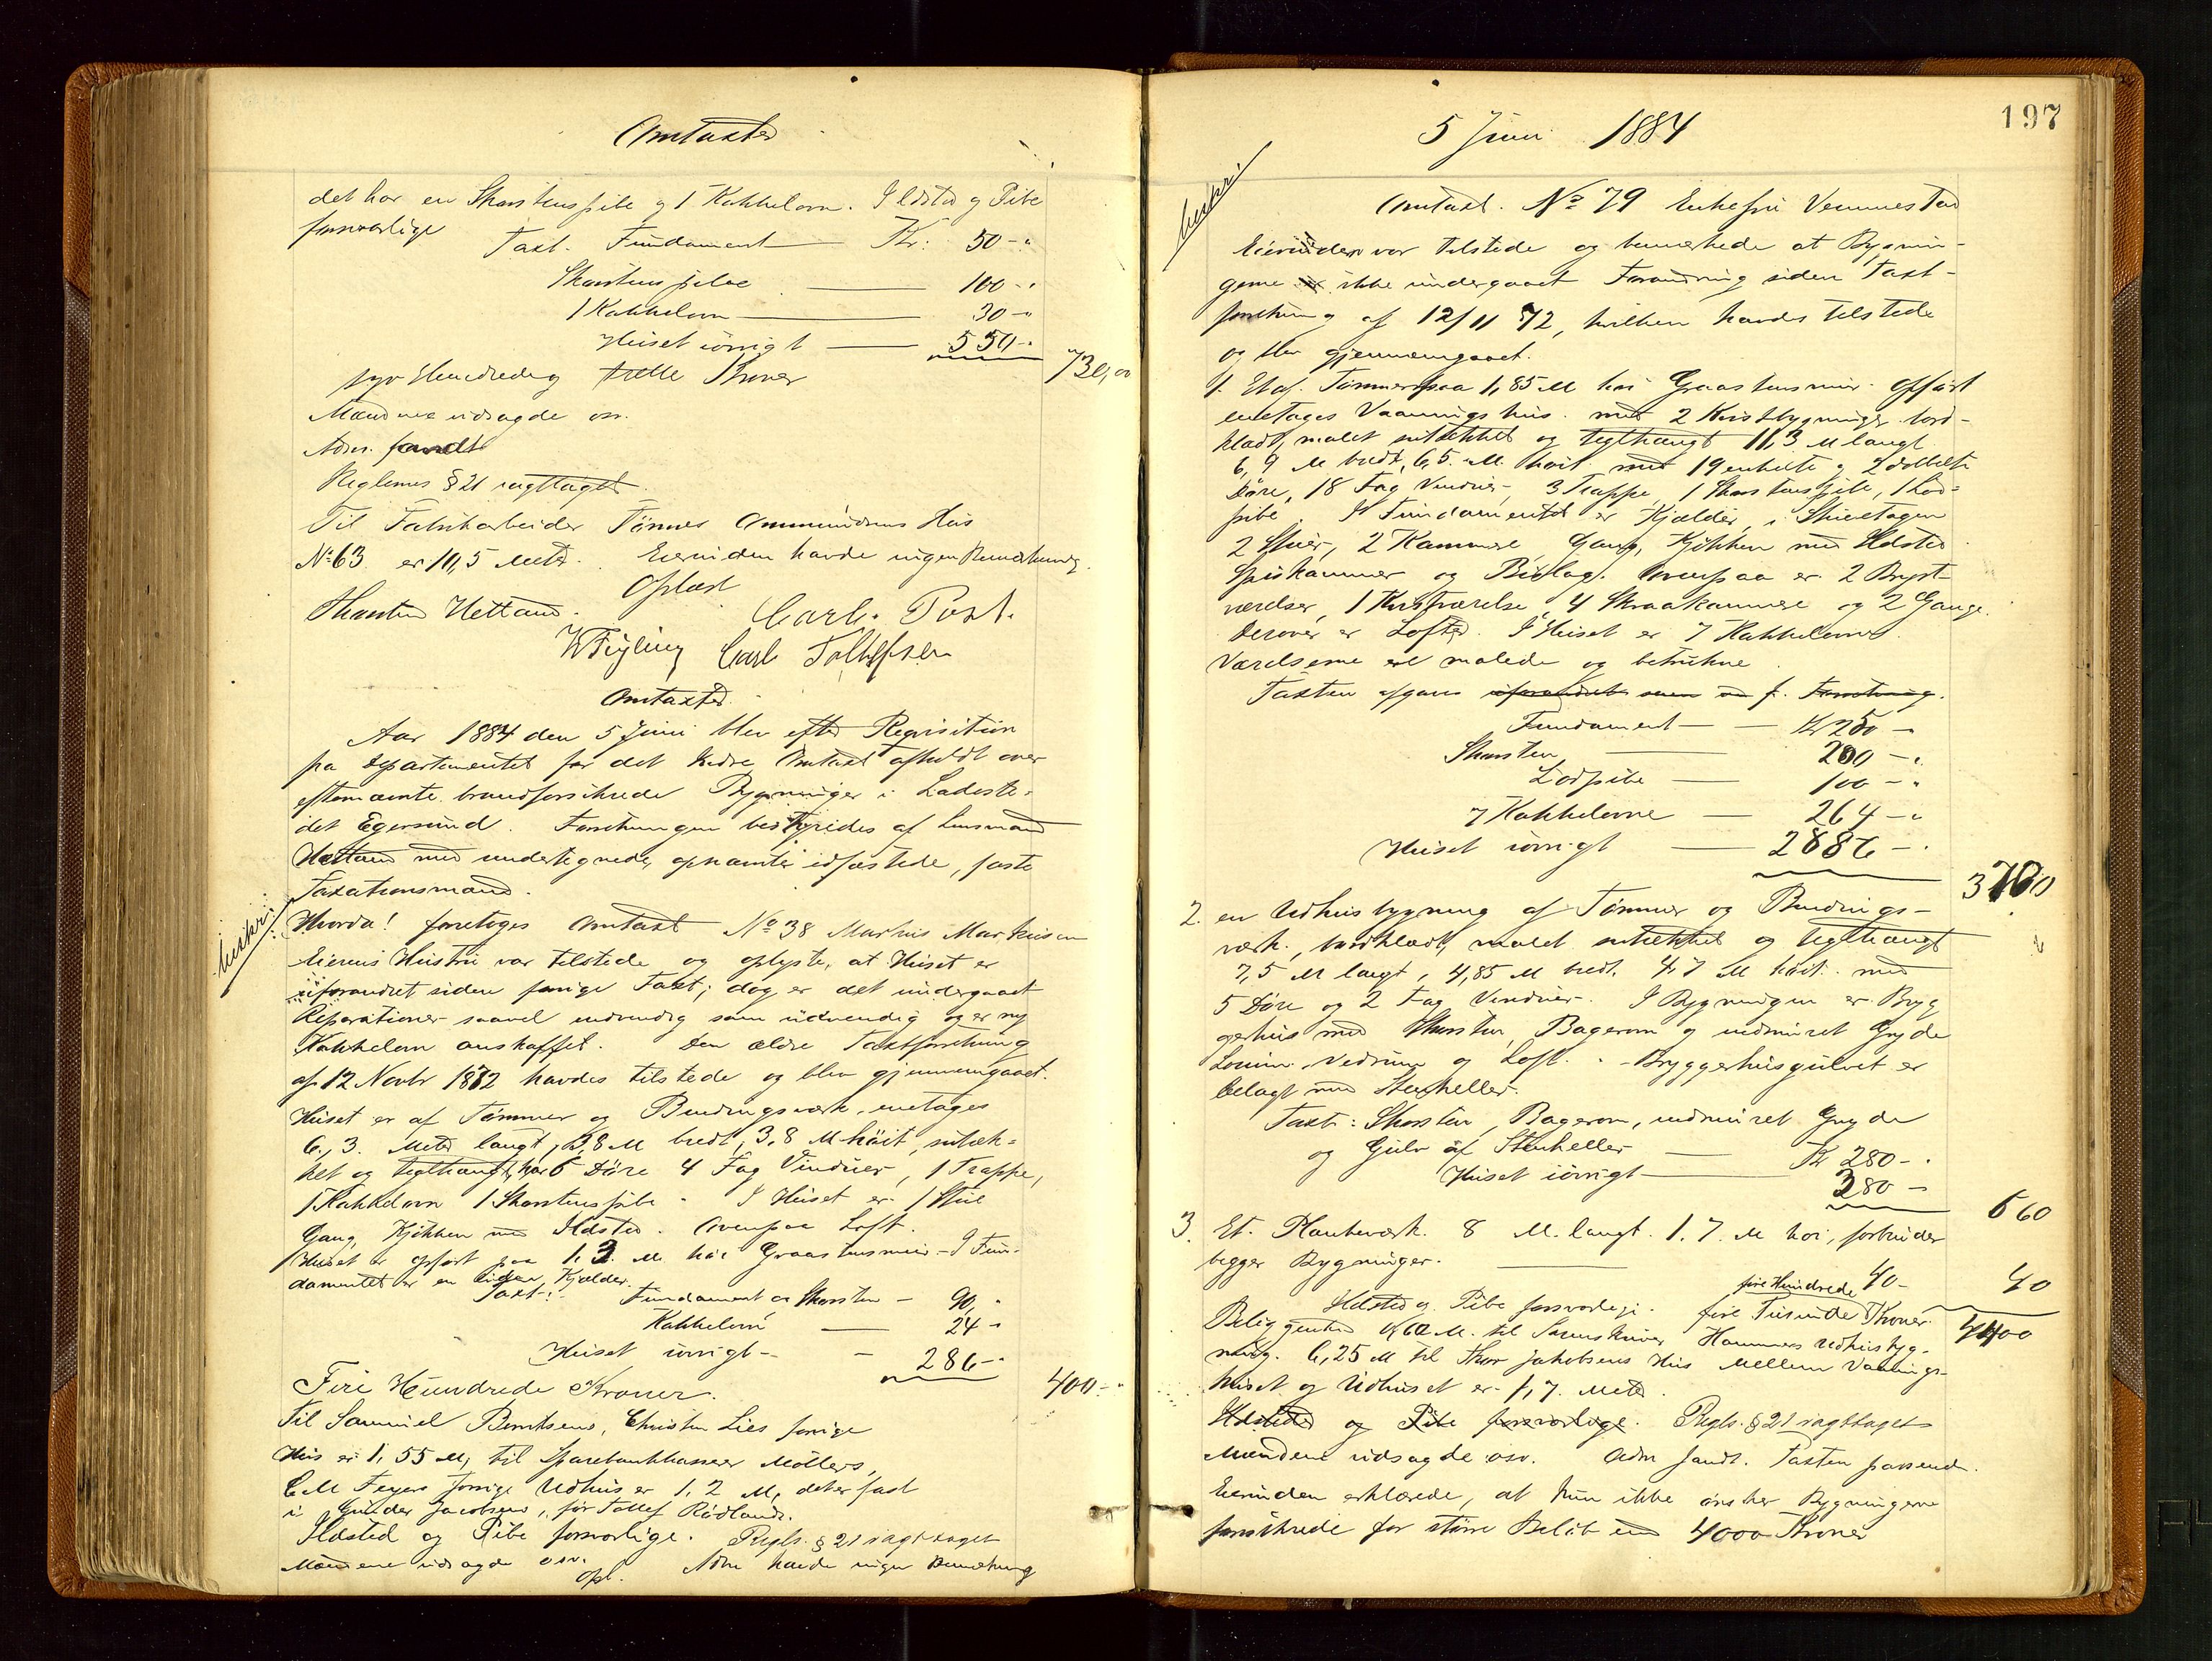 Omtaxter
det har en Skorstenspibe og 1 Kakkelovn. Ildsted og Pibe
forsvarlige
Taxt. Fundament Kr: 50-"
Skorstenspibe 100-"
1 Kakkelovn 30-"
Huset iøvrigt 550-"
syv Hundrede og tretti Kroner 730,00
Mændene udsagde osv.
Adm. fandt
Reglernes § 21 iagttaget
Til Fabrikarbeider Tønnes Ommundsens Hus
No 63 er 10,5 Meter. Eierinden havde ingen Bemærkning.
Oplæst
Thorsten Hetland. Carl. Post.
W Feyling Carl Tollefsen
Omtaxter
Aar 1884 den 5 Juni blev efter Requisition
fra Departementet for det Indre Omtaxt afholdt over
efternævnte brandforsikrede Bygninger i Ladeste-
det Egersund. Forretningen bestyredes af Lensmand
Hetland med undertegnede, opnævnte edfæstede, faste
Taxationsmænd.
Hvorda! foretoges Omtaxt No 38 Markus Markussen
Eierens Hustru var tilstede og oplyste, at Huset er
uforandret siden forrige Taxt; dog er det undergaaet
Reparationer saavel indvendig som udvendig og er ny
Kakkelovn anskaffet. Den ældre Taxtforretning
af 12 Novbr 1872 havdes tilstede og blev gjennemgaaet.
Huset er af Tømmer og Bindingsværk, enetages
6,3 Meter langt, 3,8 M bredt, 3,8 M høit, sutæk-
ket og teglhængt, har 6 Døre 4 Fag Vinduer, 1 Trappe,
1 Kakkelovn 1 Skorstenspibe - I Huset er 1 Stue
Gang, Kjøkken med Ildsted. Ovenpaa Loft.
Huset er opført paa 1,3 M. høi Graastensmur - I Fun-
damentet er en liden Kjælder.
Taxt: Fundament og Skorsten - 90,-
Kakkelovn 24 -
Huset iøvrigt - 286-"
Fire Hundrede Kroner. 400-"
Til Samuel Berntsens, Christen Lies forrige
Hus er 1,55 M, til Sparebankkasserer Møllers,
C M Feyers forrige Udhus er 1,2 M, det er fast
i Gunder Jacobsens, før Tollef Rødlands.
Ildsted og Pibe forsvarlige. Regls. § 21 iagttaget
Mændene udsagde osv. Adm havde ingen Bemærkning
opl.
5 Juni 1884
197
Omtaxt. No 79 Enkefru Vemmestad
Eierinden var tilstede og bemærkede at Bygnin-
gerne ikke undergaaet Forandring siden Taxt-
forretning af 12/11 72, hvilken havdes tilstede
og blev gjennemgaaet.
1. Et af Tømmer paa 1,85 M høi Graastensmur opført
enetages Vaaningshus med 2 Kvistbygninger bord-
klædt, malet sutækket og teglhængt 11,3 M langt
6,9 M bredt, 6,5 M. høit med 19 enkelte og 2 dobbelte
Døre, 18 Fag Vinduer, 3 Trappe, 1 Skorstenspibe, 1 Lod-
pibe. I Fundamentet er Kjælder, i Stueetagen
2 Stuer, 2 Kammere, Gang, Kjøkken med Ildsted
Spiskammer og Bislag. Ovenpaa er 2 Bryst-
værelser, 1 Kvistværelse, 4 Skraakammere og 2 Gange.
Derover er Lofter. I Huset er 7 Kakkelovne.
Værelserne ere malede og betrukne.
Taxten afgaves uforandret som
Fundament Kr 250 -
Skorsten 200 -"
Lodpibe 100 -"
7 Kakkelovne 264 -"
Huset iøvrigt 2886 -"
3700
2. en Udhusbygning af Tømmer og Bindings-
værk, bordklædt, malet sutækket og teglhængt
7,5 M langt, 4,85 M bredt, 4,7 M høit med
5 Døre og 2 Fag Vinduer. I Bygningen er Bryg
gerhus med Skorsten, Bagerovn og indmuret Gryde
Louim Vedrum og Loft. - Bryggerhusgulvet er
belagt med Stenheller.
Taxt: Skorsten, Bagerovn, indmuret Gryde
og Gulv af Stenheller Kr 280-"
Huset iøvrigt 380 -
660
3. Et Plankeværk 8 M. langt 1,7 M høi, forbinder
begge Bygninger. 40- 40
Ildsted og Pibe forsvarlige. fire Tusinde fire Hundrede Kroner. 4400
Beliggenhed M. til Sorenskriver Hammers Udhusbyg-
ning. 6,25 M til Thor Jakobsens Hus Mellem Vaanings-
huset og Udhuset er 1,7 Meter.
Ildsted og Pibe forsvarlige. Regls. § 21 iagttaget
Mændene udsagde osv. Adm fandt Taxten passende.
Eierinden erklærede, at hun ikke ønsker Bygningerne
forsikrede for større Beløb end 4000 Kroner